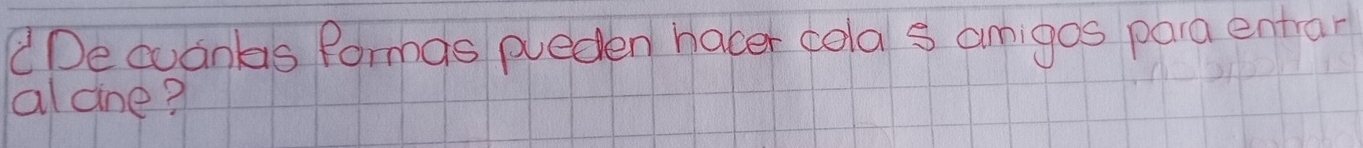 ¿De cuántas formas pueden hacer cola 5 amigos para entrar
al cine?